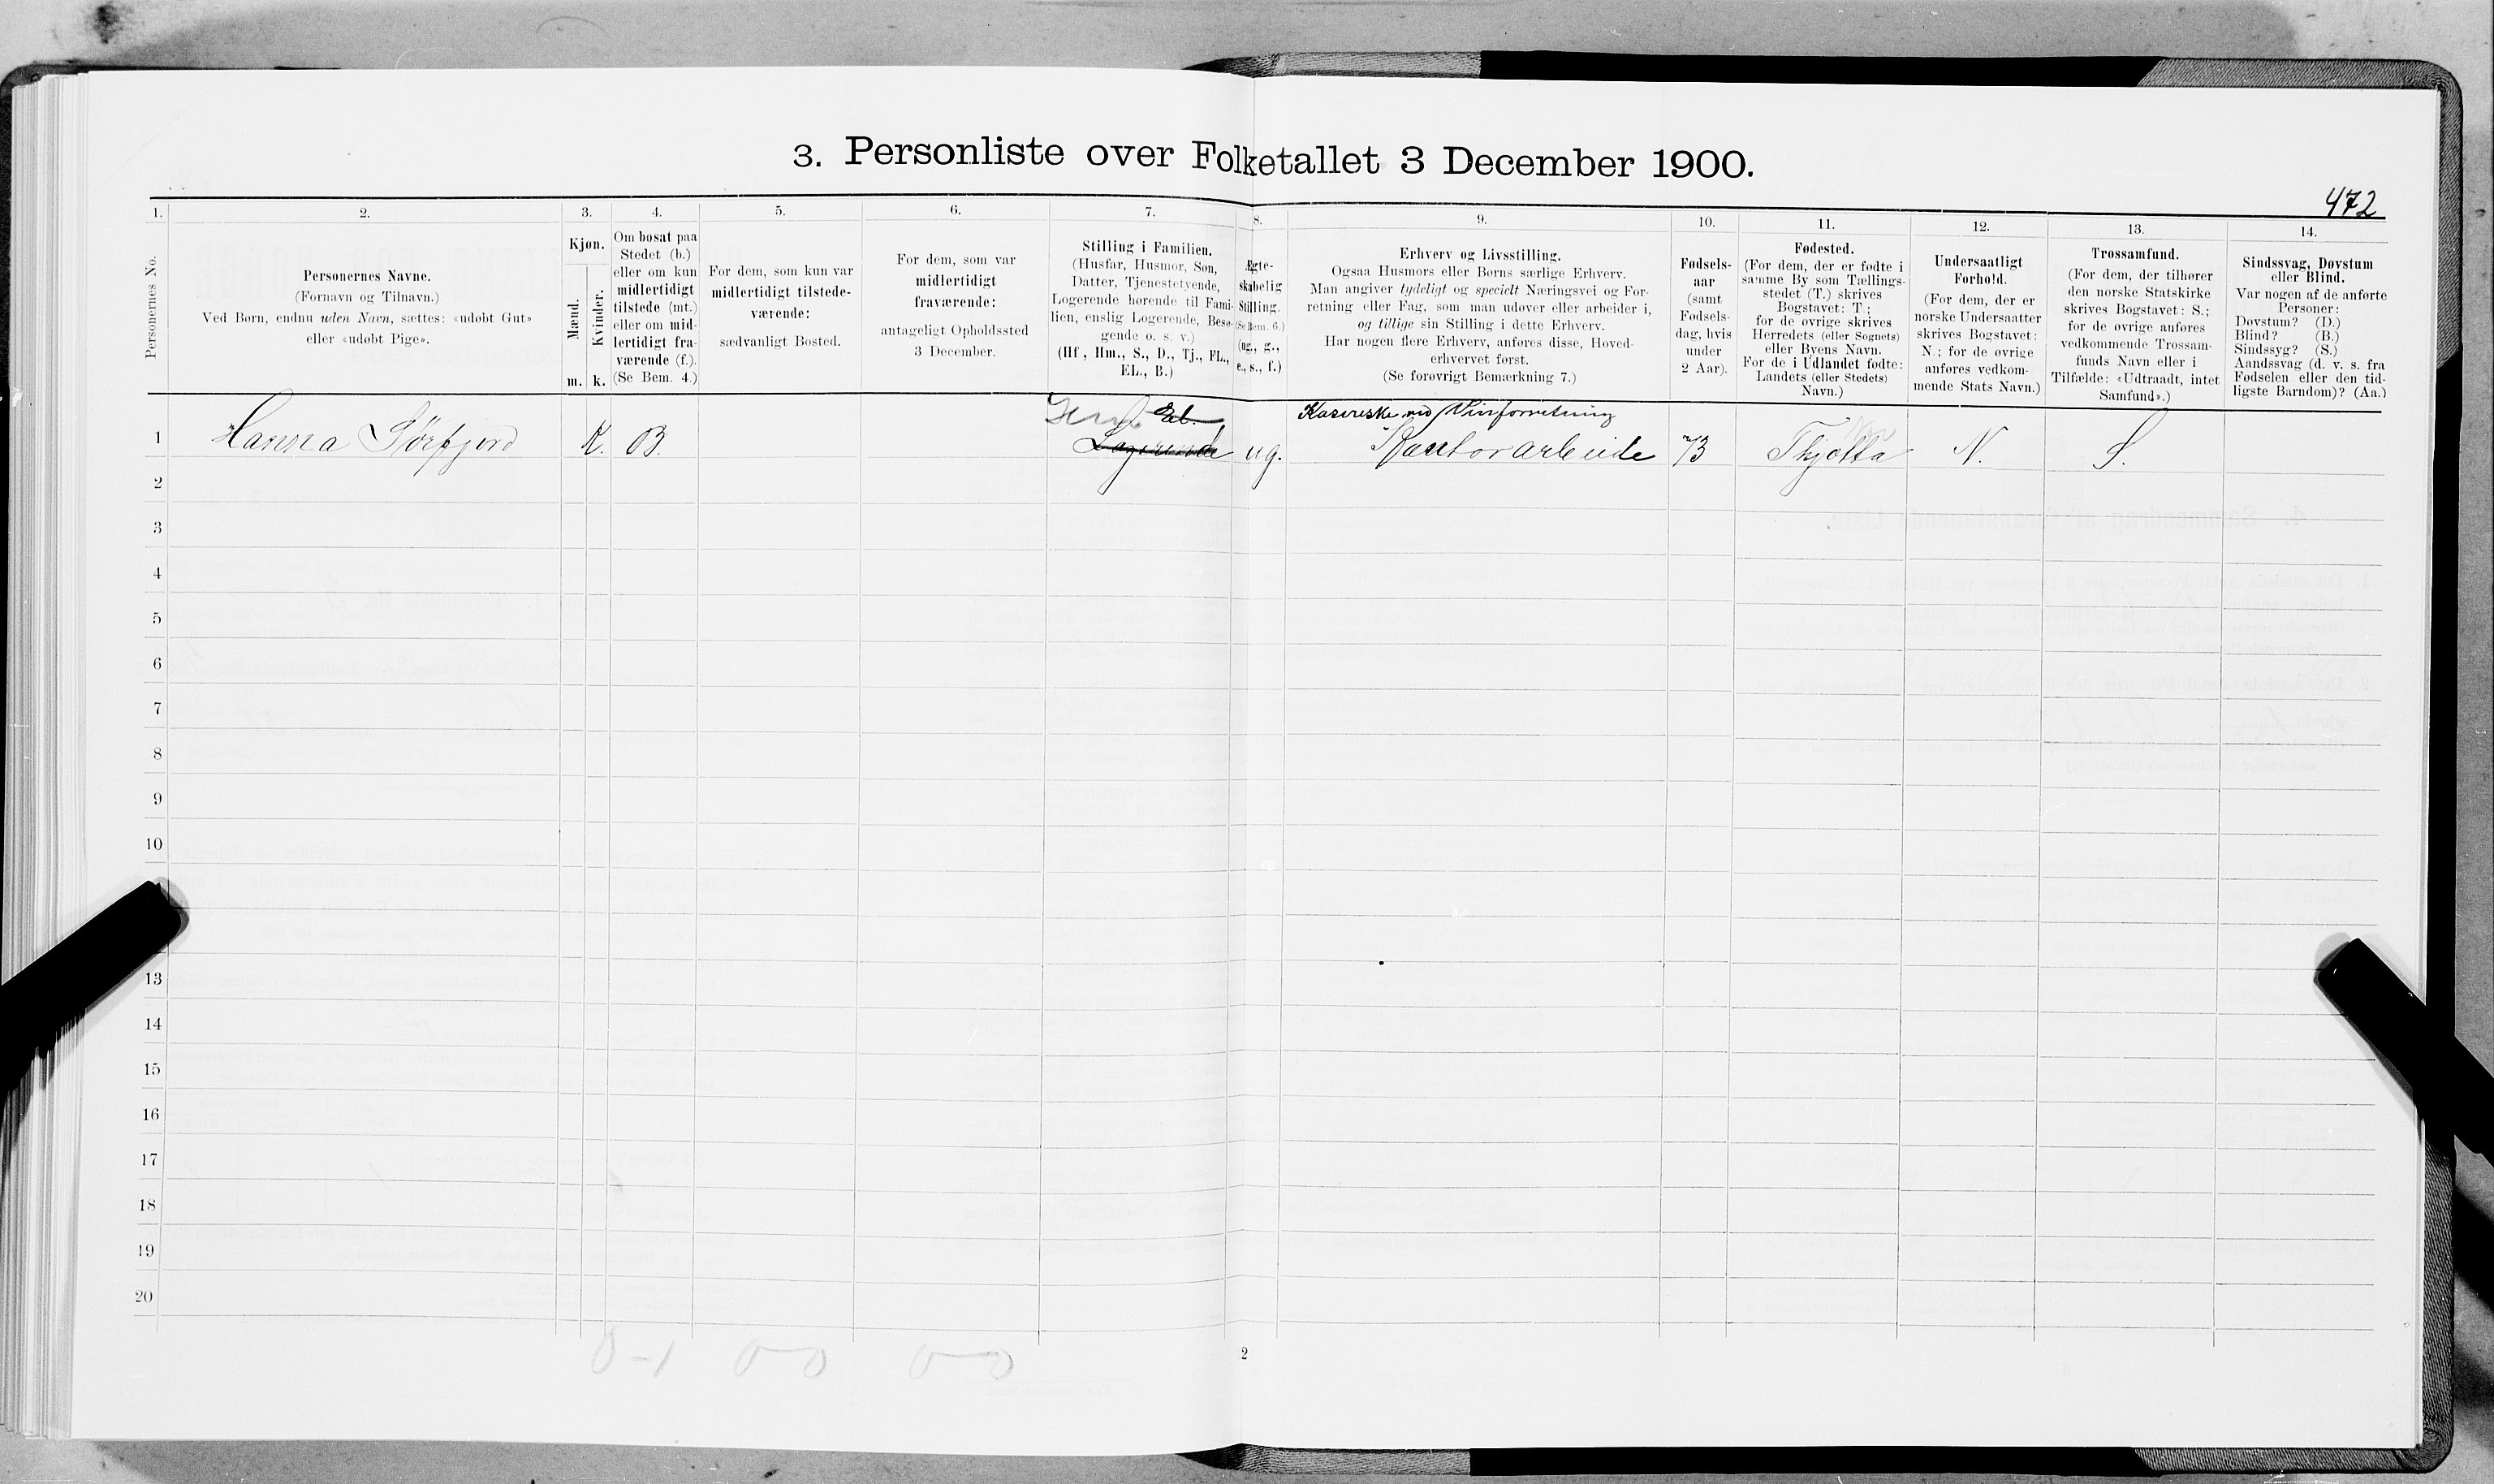 3. Personliste over Folketallet 3 December 1900.
472
1.
2.
3.
4.
5.
6.
7.
8.
9.
10.
11.
12.
13.
14.
Personernes No.
Personernes Navne.
(Fornavn og Tilnavn.)
Ved Børn, endnu uden Navn, sættes: «udøbt Gut»
eller «udøbt Pige».
Kjøn.
Mænd.
Kvinder.
m.
k.
Om bosat paa
Stedet (b.)
eller om kun
midlertidigt
tilstede (mt.)
eller om mid-
lertidigt fra-
værende (f.).
(Se Bem. 4.)
For dem, som kun var
midlertidigt tilstede-
værende:
sædvanligt Bosted.
For dem, som var
midlertidigt
fraværende:
antageligt Opholdssted
3 December.
Stilling i Familien.
(Husfar, Husmor, Søn,
Datter, Tjenestetyende,
Logerende hørende til Fami-
lien, enslig Logerende, Besø-
gende o. s. v.)
(Hf., Hm., S., D., Tj., FL.,
EL., B.)
Ægte-
skabelig
Stilling.
(Se Bem. 6.)
(ug., g.,
e., s., f.)
Erhverv og Livsstilling.
Ogsaa Husmors eller Børns særlige Erhverv.
Man angiver tydeligt og specielt Næringsvei og For-
retning eller Fag, som man udøver eller arbeider i,
og tillige sin Stilling i dette Erhverv.
Har nogen flere Erhverv, anføres disse, Hoved-
erhvervet først.
(Se forøvrigt Bemærkning 7.)
Fødsels-
aar
(samt
Fødsels-
dag, hvis
under
2 Aar).
Fødested.
(For dem, der er fødte i
samme By som Tællings-
stedet (T.) skrives
Bogstavet: T.;
for de øvrige skrives
Herredets (eller Sognets)
eller Byens Navn.
For de i Udlandet fødte:
Landets (eller Stedets)
Navn.)
Undersaatligt
Forhold.
(For dem, der er
norske Undersaatter
skrives Bogstavet:
N.; for de øvrige
anføres vedkom-
mende Stats Navn.)
Trossamfund.
(For dem, der tilhører
den norske Statskirke
skrives Bogstavet: S.;
for de øvrige anføres
vedkommende Trossam-
funds Navn eller i
Tilfælde: «Udtraadt, intet
Samfund».)
Sindssvag, Døvstum
eller Blind.
Var nogen af de anførte
Personer:
Døvstum? (D.)
Blind? (B.)
Sindssyg? (S.)
Aandssvag (d. v. s. fra
Fødselen eller den tid-
ligste Barndom)? (Aa.)
El.
Kasereske ved Vinforretning
1 Hanna Sörfjord K. B. Logerende ug. Kontorarbeide 73 Thjøtta N. S.
2
3
4
5
6
7
8
9
10
13
14
15
16
17
18
19
20
0-1 0-0 0-0
2